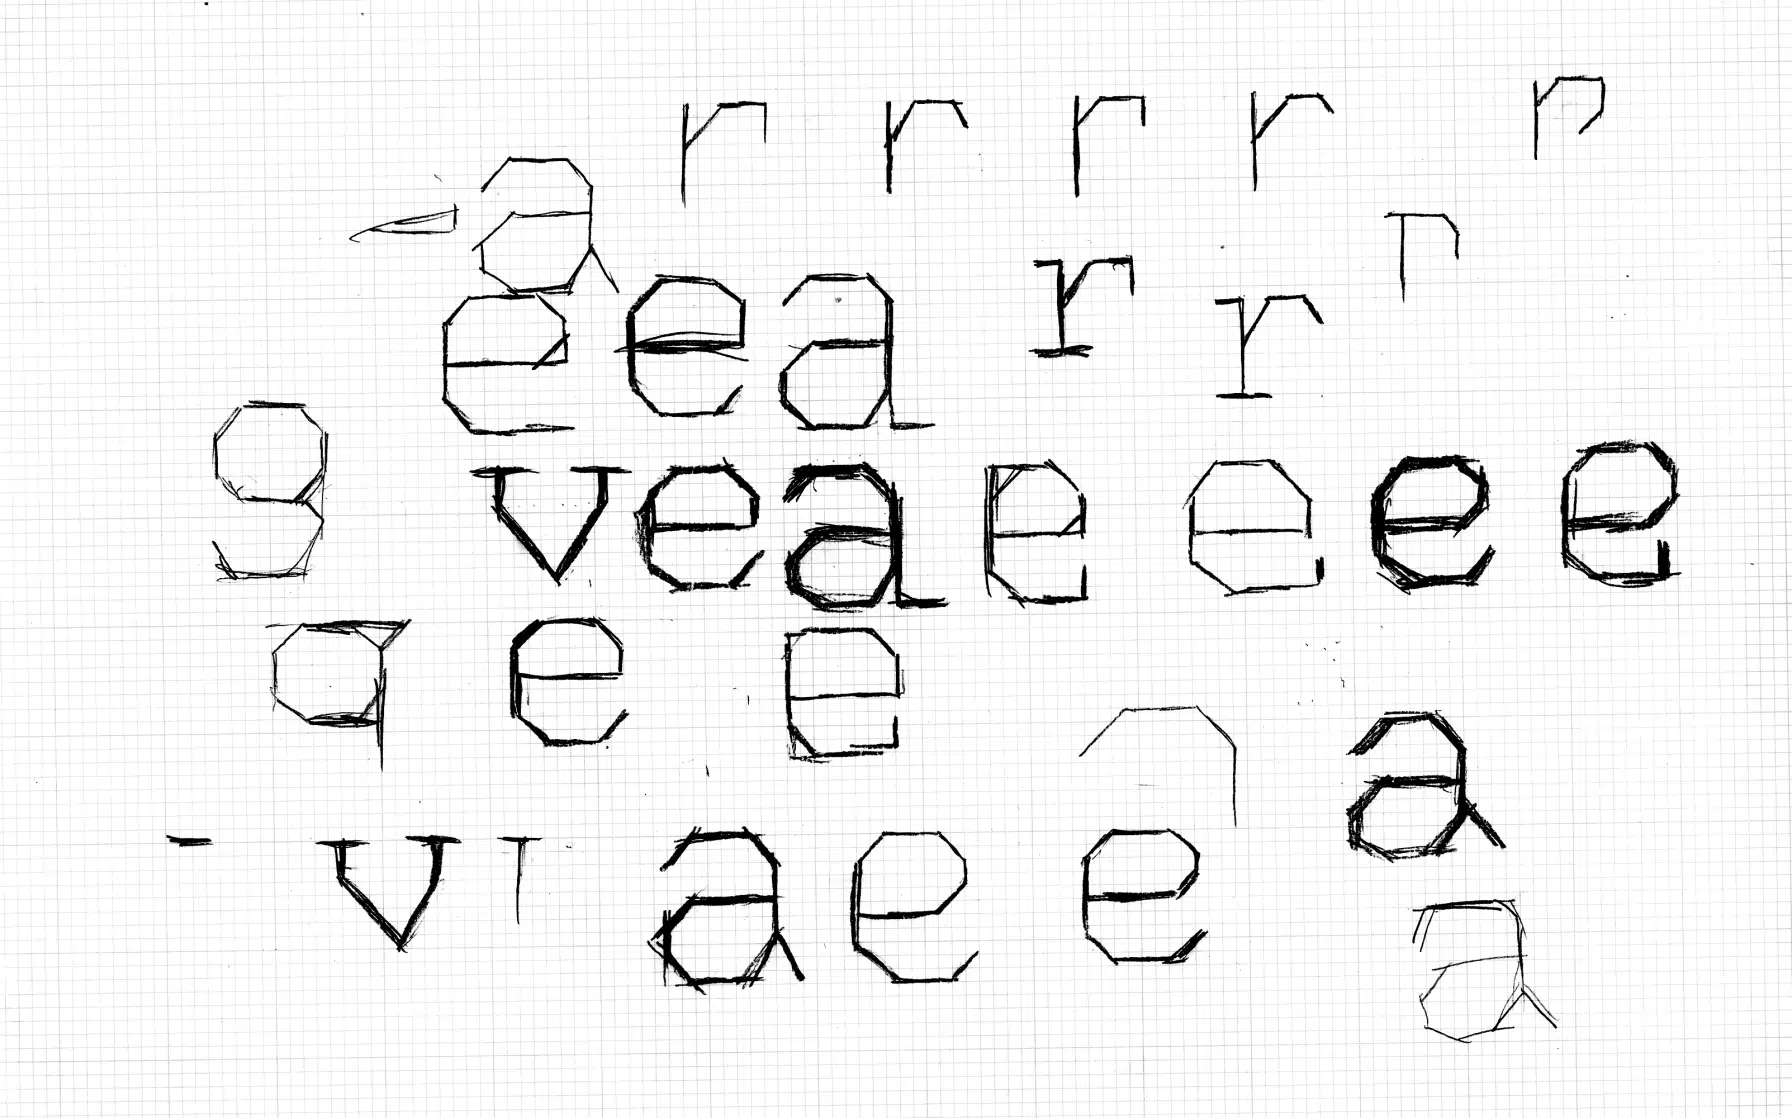 r r r r r
a r
e e a r r
g v e a e e e e
q e e
a
v a e e
a